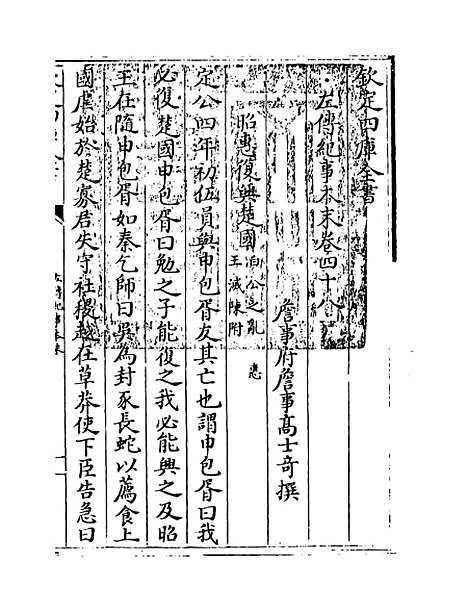 欽定四庫全書
左傳紀事本末卷四十八
詹事府詹事高士奇撰
昭惠復興楚國 白公之亂 惠
王滅陳附
定公四年初伍員與申包胥友其亡也謂申包胥曰我
必復楚國申包胥曰勉之子能復之我必能興之及昭
王在隨申包胥如秦乞師曰吳為封豕長蛇以薦食上
國虐始於楚寡君失守社稷越在草莽使下臣告急曰